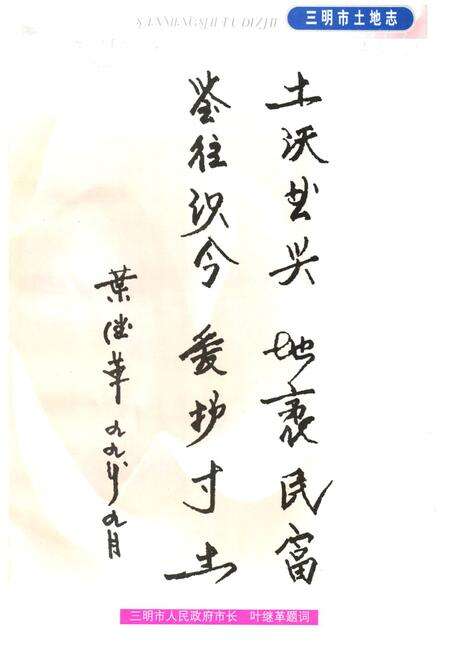 SANMINGSHI TUDIZHI
三明市土地志
土沃兴 地袤民富
鉴往识今 爱护寸土
葉继革 九九年九月
三明市人民政府市长 叶继革题词